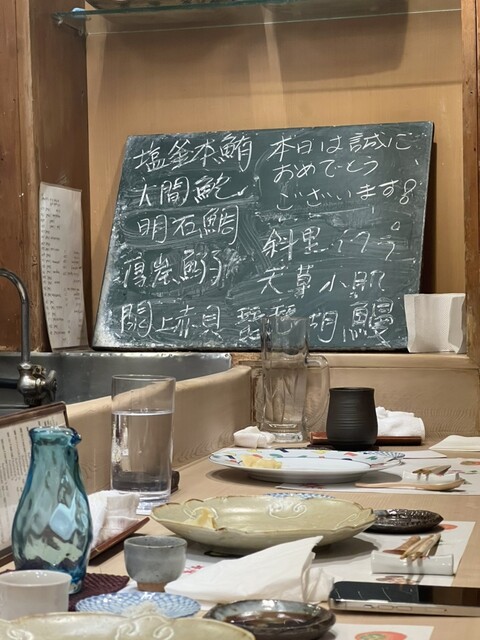 塩釜本鮪
大間鮑
明石鯛
厚岸鰯
閖上赤貝
本日は誠に
おめでとう
ございます!!
斜里イクラ
天草小肌
琵琶湖鰻